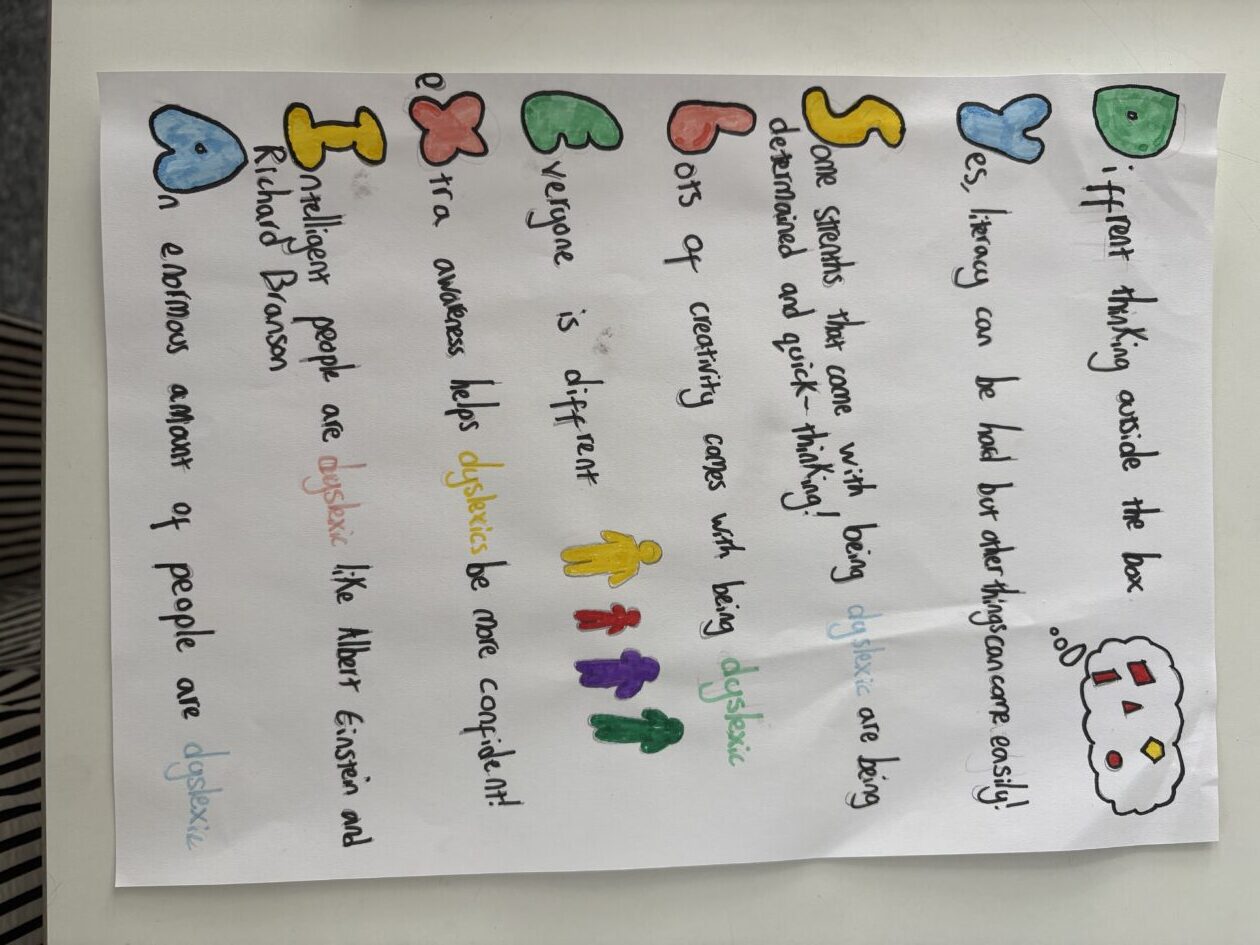 Diffrent thinking outside the box
Yes, literacy can be hard but other things can come easily!
Some strenths that come with being dyslexic are being
determined and quick-thinking!
Lots of creativity comes with being dyslexic
Everyone is diffrent
eXtra awareness helps dyslexics be more confident!
Intelligent people are dyslexic like Albert Einstein and
Richard Branson
An enormous amount of people are dyslexic